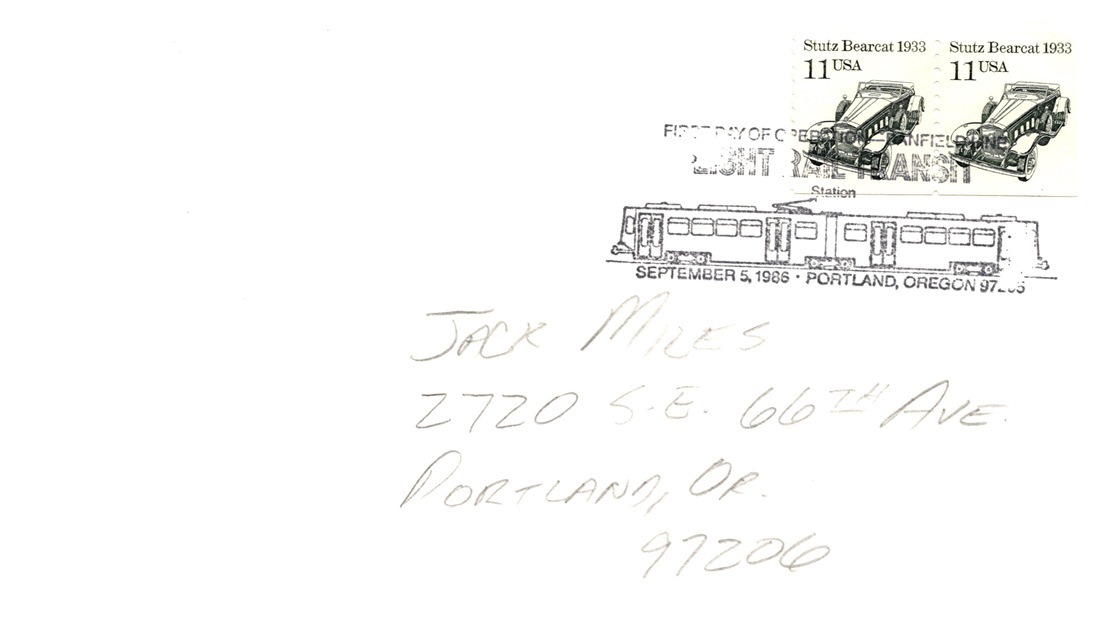 Stutz Bearcat 1933 Stutz Bearcat 1933
11 USA 11 USA
FIRST DAY OF OPERATION—BANFIELD LINE
LIGHT RAIL TRANSIT
Station
SEPTEMBER 5, 1986 • PORTLAND, OREGON
JACK MILES
2720 S.E. 66TH AVE.
PORTLAND, OR.
97206